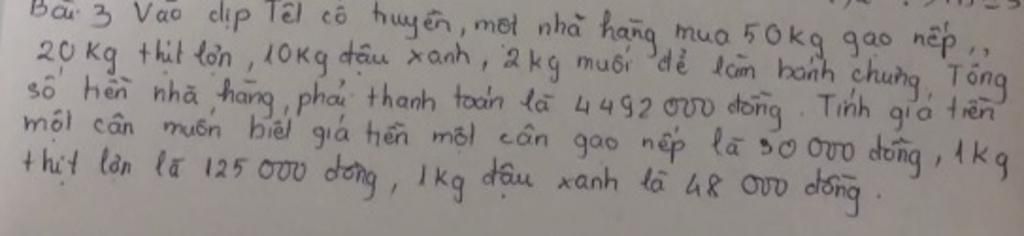 Bài 3 Vào dịp Tết cổ truyền, một nhà hàng mua 50kg gạo nếp,
20 kg thịt lợn, 10kg đậu xanh, 2 kg muối để làm bánh chưng. Tổng
số tiền nhà hàng phải thanh toán là 4492 000 đồng. Tính giá tiền
một cân muốn biết giá tiền một cân gạo nếp là 30 000 đồng, 1kg
thịt lợn là 125 000 đồng, 1kg đậu xanh là 48 000 đồng.